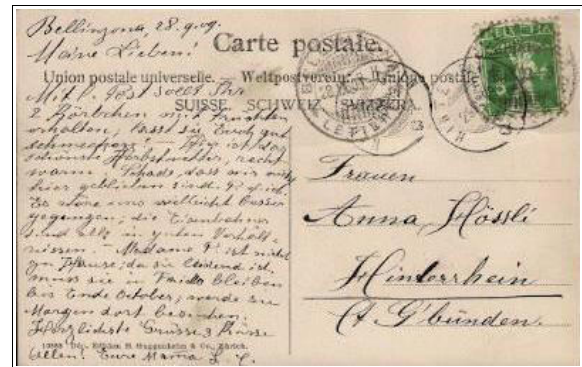 Bellinzona, 28.9.09.
Meine Lieben!
Carte postale.
Union postale universelle. — Weltpostverein. — Unique postale
SUISSE. SCHWEIZ. SVIZZERA.
Mit l. Post sollt Ihr
2 Körbchen mit Früchten
erhalten, lasst sie Euch gut
schmecken. — Hier ist das
schönste Herbstwetter, recht
warm. Schade, dass wir nicht
hier geblieben sind.
Es wäre uns vielleicht besser
gegangen, die Eisenbahner
sind alle in guten Verhält-
nissen. — Madame P. ist nicht
zu Hause; da sie leidend ist,
muss sie in Faido bleiben
bis Ende October, werde sie
Morgen dort besuchen.
Herzlichste Grüsse & Küsse
Allen! Eure Mama L. C.
Frauen
Anna Hössli
Hinterrhein
Ct G'bünden.
BELLINZONA
LETTERE
HELVETIA
12583 Dép. Edition H. Guggenheim & Co., Zürich.